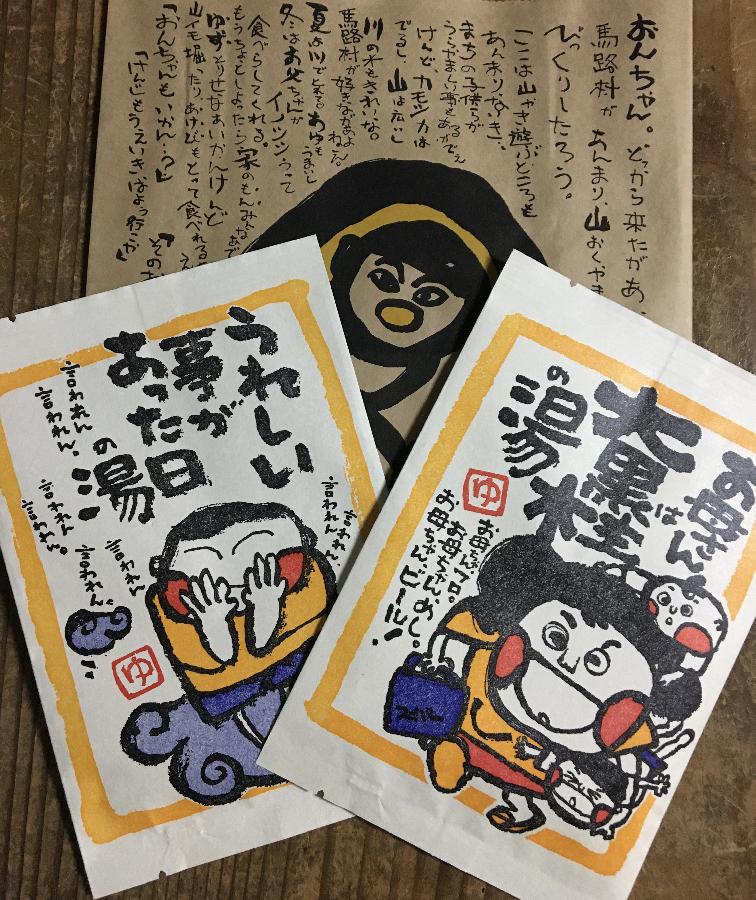 おんちゃん。どっから来たがあ、
馬路村が あんまり、山おくやき
びっくりしたろう。
ここは山やき遊ぶところも
あんまりないき、
まちの子供らが
うらやましい事もあるがでえ
けんど、カモシカは
でるし、山は広いし
川の水もきれいな。
馬路村が好きながあよ
ねえ。
夏は川でとれるあゆもうまいし
冬はお父ちゃんが
イノシシうって
食べらしてくれる。
もうちょっとしよったら家のもんみんなあで
ゆずとりせなあいかんけんど
山イモ堀ったり、あけびもとって食べれる
「おんちゃんもいかん…?」
「けんじもうえいきはよう行こうか」
うれしい
事が
あった日
の湯
言われん、
言われん、
言われん
言われん。
言われん
言われん。
言われん
言われん。
ゆ
お母さん
は
大黒柱
の湯
ゆ
お母ちゃんフロ。
お母ちゃん、めし。
お母ちゃん、ビール!